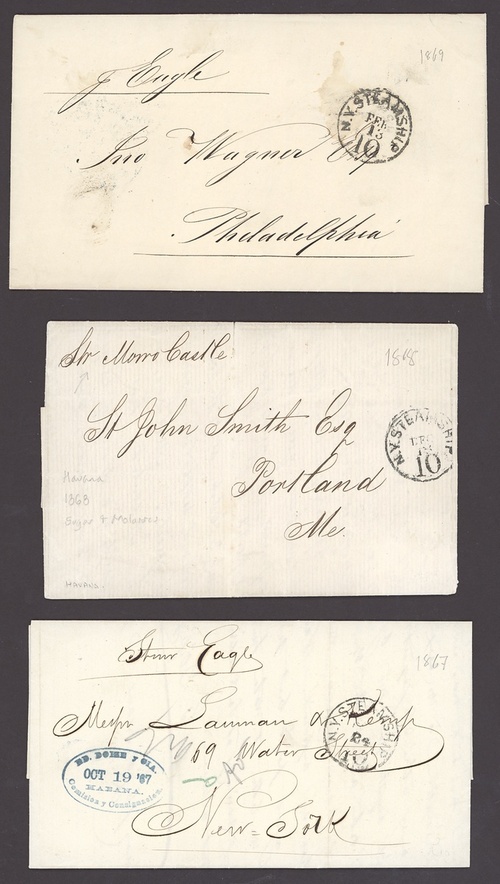 1869
p Eagle
N.Y. STEAMSHIP
FEB
13
10
Jno Wagner Esq
Philadelphia
Str Morro Castle
1868
St John Smith Esq
N.Y. STEAMSHIP
10
Portland
Me.
Havana
1868
Sugar & Molasses
HAVANA.
Stmr Eagle
1867
Messrs Lanman & Kemp
N.Y. STEAMSHIP
24
10
69 Water Street
OCT 19 '67
HABANA.
Comision y Consignacion
New=York